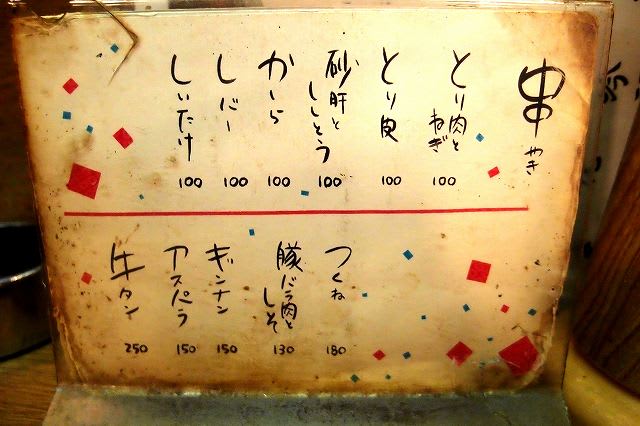 串やき
とり肉とねぎ
100
とり皮
100
砂肝とししとう
100
かしら
100
しびー
100
しいたけ
100
つくね
180
豚バラ肉としそ
130
ギンナン
150
アスパラ
150
牛タン
250